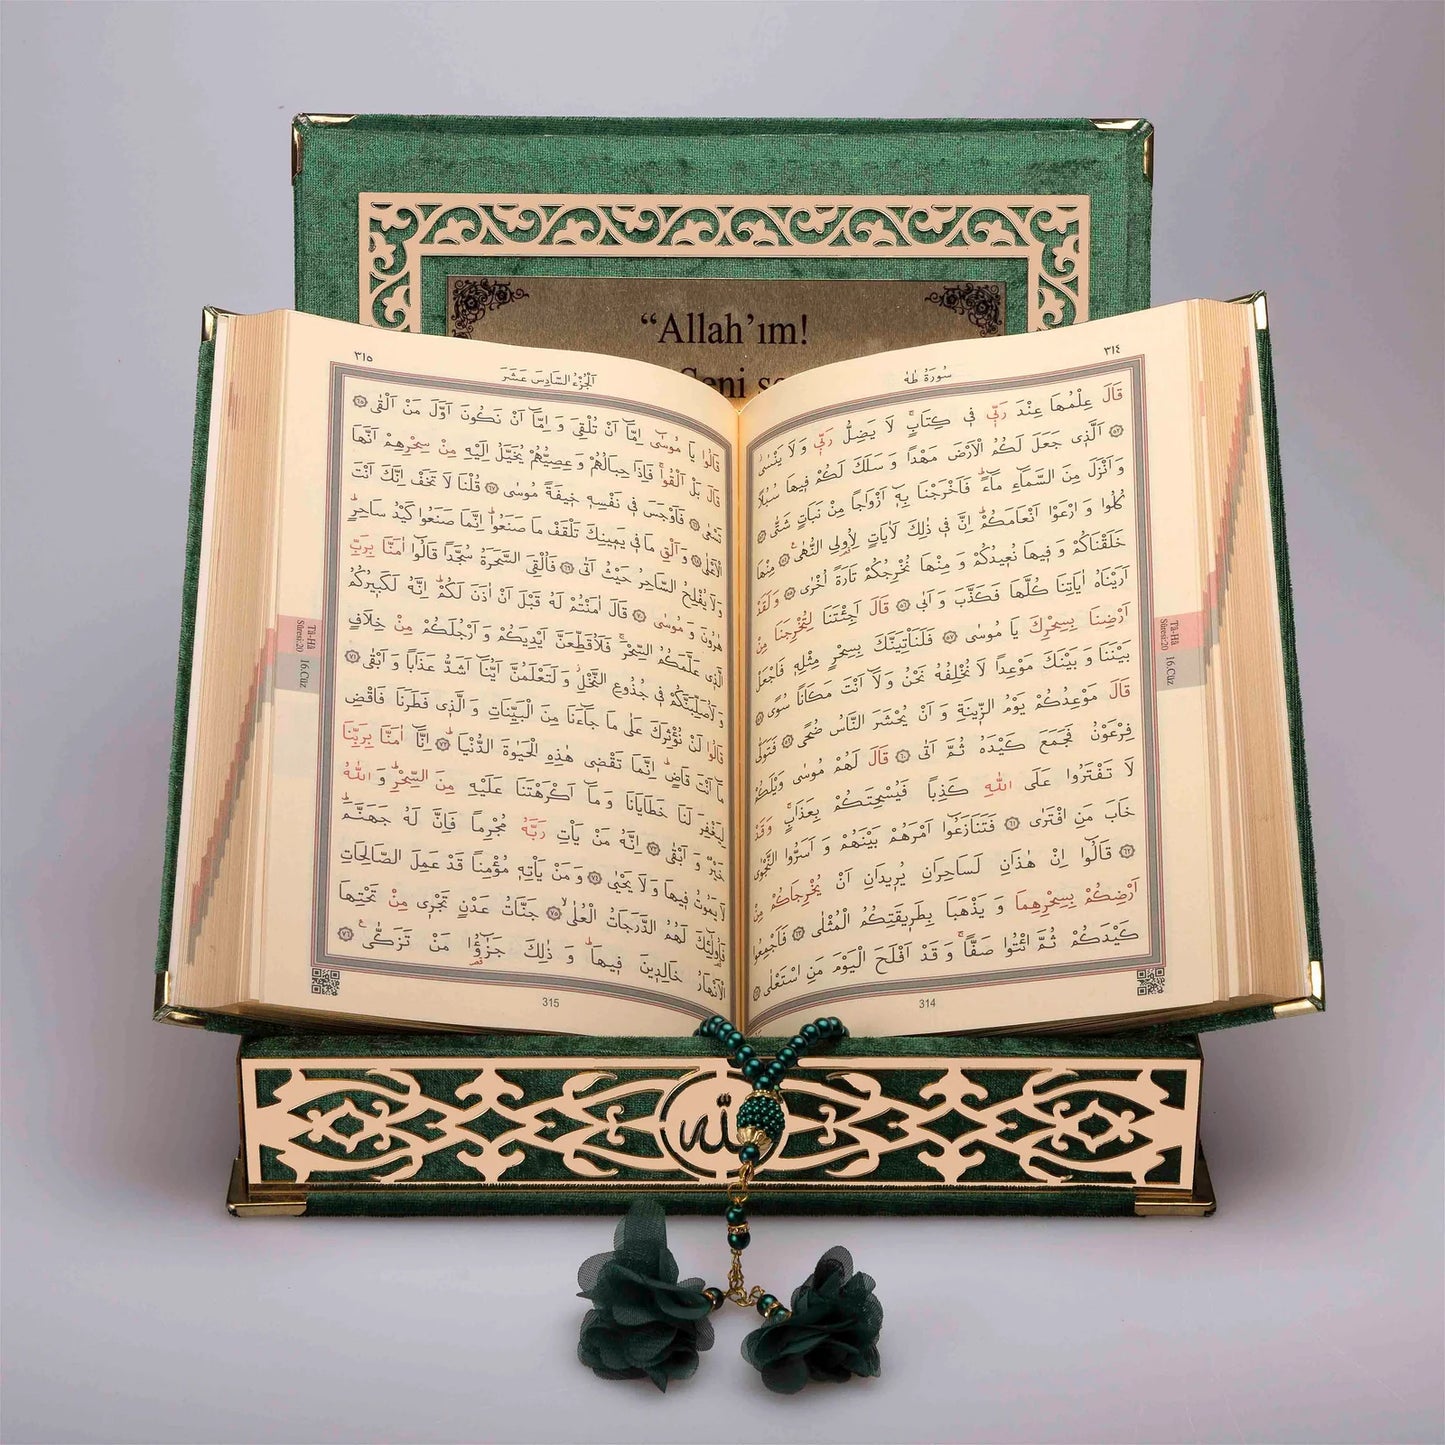 “Allah’ım!
Seni
٣١٤
سُورَةُ طٰهٰ
قَالَ عِلْمُهَا عِنْدَ رَبّ۪ي ف۪ي كِتَابٍۚ لَا يَضِلُّ رَبّ۪ي وَلَا يَنْسٰىۘ
﴿٥٢﴾ اَلَّذ۪ي جَعَلَ لَكُمُ الْاَرْضَ مَهْداً وَسَلَكَ لَكُمْ ف۪يهَا سُبُلاً
وَاَنْزَلَ مِنَ السَّمَٓاءِ مَٓاءًۜ فَاَخْرَجْنَا بِه۪ٓ اَزْوَاجاً مِنْ نَبَاتٍ شَتّٰى ﴿٥٣﴾
كُلُوا وَارْعَوْا اَنْعَامَكُمْۜ اِنَّ ف۪ي ذٰلِكَ لَاٰيَاتٍ لِاُو۬لِي النُّهٰى۟ ﴿٥٤﴾ مِنْهَا
خَلَقْنَاكُمْ وَف۪يهَا نُع۪يدُكُمْ وَمِنْهَا نُخْرِجُكُمْ تَارَةً اُخْرٰى ﴿٥٥﴾ وَلَقَدْ
اَرَيْنَاهُ اٰيَاتِنَا كُلَّهَا فَكَذَّبَ وَاَبٰى ﴿٥٦﴾ قَالَ اَجِئْتَنَا لِتُخْرِجَنَا مِنْ
اَرْضِنَا بِسِحْرِكَ يَا مُوسٰى ﴿٥٧﴾ فَلَنَأْتِيَنَّكَ بِسِحْرٍ مِثْلِه۪ فَاجْعَلْ
بَيْنَنَا وَبَيْنَكَ مَوْعِداً لَا نُخْلِفُهُ نَحْنُ وَلَٓا اَنْتَ مَكَاناً سُوًى ﴿٥٨﴾
قَالَ مَوْعِدُكُمْ يَوْمُ الزّ۪ينَةِ وَاَنْ يُحْشَرَ النَّاسُ ضُحًى ﴿٥٩﴾ فَتَوَلّٰى
فِرْعَوْنُ فَجَمَعَ كَيْدَهُ ثُمَّ اَتٰى ﴿٦٠﴾ قَالَ لَهُمْ مُوسٰى وَيْلَكُمْ
لَا تَفْتَرُوا عَلَى اللّٰهِ كَذِباً فَيُسْحِتَكُمْ بِعَذَابٍۚ وَقَدْ
خَابَ مَنِ افْتَرٰى ﴿٦١﴾ فَتَنَازَعُٓوا اَمْرَهُمْ بَيْنَهُمْ وَاَسَرُّوا النَّجْوٰى
﴿٦٢﴾ قَالُٓوا اِنْ هٰذَانِ لَسَاحِرَانِ يُر۪يدَانِ اَنْ يُخْرِجَاكُمْ مِنْ
اَرْضِكُمْ بِسِحْرِهِمَا وَيَذْهَبَا بِطَر۪يقَتِكُمُ الْمُثْلٰى ﴿٦٣﴾ فَاَجْمِعُوا
كَيْدَكُمْ ثُمَّ ائْتُوا صَفاًّۚ وَقَدْ اَفْلَحَ الْيَوْمَ مَنِ اسْتَعْلٰى ﴿٦٤﴾
Tâ-Hâ
Sûresi:20
16.Cüz
314
٣١٥
اَلْجُزْءُ السَّادِسَ عَشَرَ
قَالُوا يَا مُوسٰٓى اِمَّٓا اَنْ تُلْقِيَ وَاِمَّٓا اَنْ نَكُونَ اَوَّلَ مَنْ اَلْقٰى ﴿٦٥﴾
قَالَ بَلْ اَلْقُواۚ فَاِذَا حِبَالُهُمْ وَعِصِيُّهُمْ يُخَيَّلُ اِلَيْهِ مِنْ سِحْرِهِمْ اَنَّهَا
تَسْعٰى ﴿٦٦﴾ فَاَوْجَسَ ف۪ي نَفْسِه۪ خ۪يفَةً مُوسٰى ﴿٦٧﴾ قُلْنَا لَا تَخَفْ اِنَّكَ اَنْتَ
الْاَعْلٰى ﴿٦٨﴾ وَاَلْقِ مَا ف۪ي يَم۪ينِكَ تَلْقَفْ مَا صَنَعُواۜ اِنَّمَا صَنَعُوا كَيْدُ سَاحِرٍۜ
وَلَا يُفْلِحُ السَّاحِرُ حَيْثُ اَتٰى ﴿٦٩﴾ فَاُلْقِيَ السَّحَرَةُ سُجَّداً قَالُٓوا اٰمَنَّا بِرَبِّ
هٰرُونَ وَمُوسٰى ﴿٧٠﴾ قَالَ اٰمَنْتُمْ لَهُ قَبْلَ اَنْ اٰذَنَ لَكُمْۜ اِنَّهُ لَكَب۪يرُكُمُ
الَّذ۪ي عَلَّمَكُمُ السِّحْرَۚ فَلَاُقَطِّعَنَّ اَيْدِيَكُمْ وَاَرْجُلَكُمْ مِنْ خِلَافٍ
وَلَاُصَلِّبَنَّكُمْ ف۪ي جُذُوعِ النَّخْلِۘ وَلَتَعْلَمُنَّ اَيُّنَٓا اَشَدُّ عَذَاباً وَاَبْقٰى ﴿٧١﴾
قَالُوا لَنْ نُؤْثِرَكَ عَلٰى مَا جَٓاءَنَا مِنَ الْبَيِّنَاتِ وَالَّذ۪ي فَطَرَنَا فَاقْضِ
مَٓا اَنْتَ قَاضٍۜ اِنَّمَا تَقْض۪ي هٰذِهِ الْحَيٰوةَ الدُّنْيَاۜ ﴿٧٢﴾ اِنَّٓا اٰمَنَّا بِرَبِّنَا
لِيَغْفِرَ لَنَا خَطَايَانَا وَمَٓا اَكْرَهْتَنَا عَلَيْهِ مِنَ السِّحْرِۜ وَاللّٰهُ
خَيْرٌ وَاَبْقٰى ﴿٧٣﴾ اِنَّهُ مَنْ يَأْتِ رَبَّهُ مُجْرِماً فَاِنَّ لَهُ جَهَنَّمَۜ
لَا يَمُوتُ ف۪يهَا وَلَا يَحْيٰى ﴿٧٤﴾ وَمَنْ يَأْتِه۪ مُؤْمِناً قَدْ عَمِلَ الصَّالِحَاتِ
فَاُو۬لٰٓئِكَ لَهُمُ الدَّرَجَاتُ الْعُلٰىۙ ﴿٧٥﴾ جَنَّاتُ عَدْنٍ تَجْر۪ي مِنْ تَحْتِهَا
الْاَنْهَارُ خَالِد۪ينَ ف۪يهَاۜ وَذٰلِكَ جَزٰٓؤُ۬ا مَنْ تَزَكّٰى۟ ﴿٧٦﴾
Tâ-Hâ
Sûresi:20
16.Cüz
315
الله